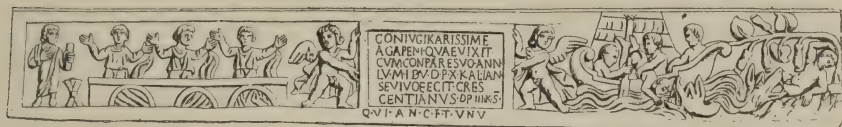 CONIVGI KARISSIME
AGAPENI QVAE VIXIT
CVM CONPARE SVO·ANN
LV·M·I BV·D·P·X·KALIAN
SE VIVO FECIT·CRES
CENTIANVS·DP IIII K S·
Q·V·I·A N·C·F·T·V N V